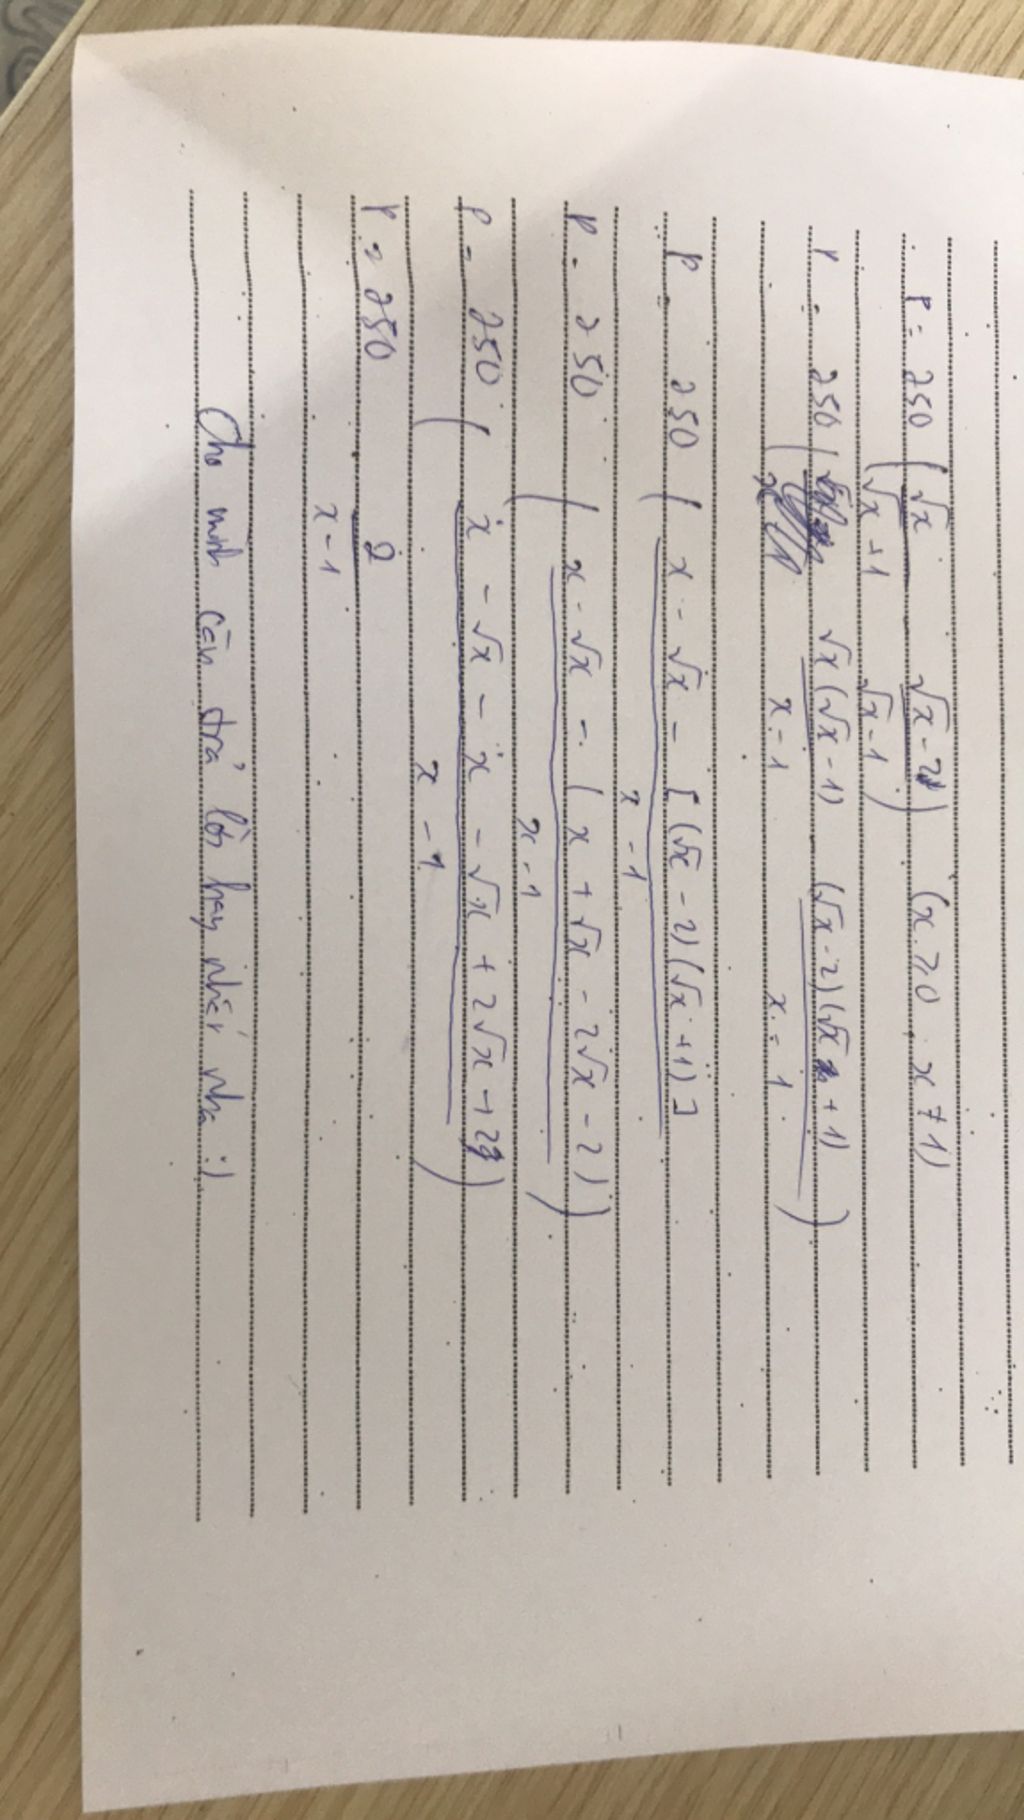 P = 250 ( √x / √x + 1 √x - 2 / √x - 1 ) (x ≥ 0, x ≠ 1)
P = 250 ( √x (√x - 1) / x - 1 (√x - 2)(√x + 1) / x - 1 )
P = 250 ( x - √x - [(√x - 2)(√x + 1)] / x - 1
P = 250 ( x - √x - (x + √x - 2√x - 2) / x - 1 )
P = 250 ( x - √x - x - √x + 2√x + 2 / x - 1 )
P = 250 2 / x - 1
Cho mình câu trả lời hay nhất nha :)